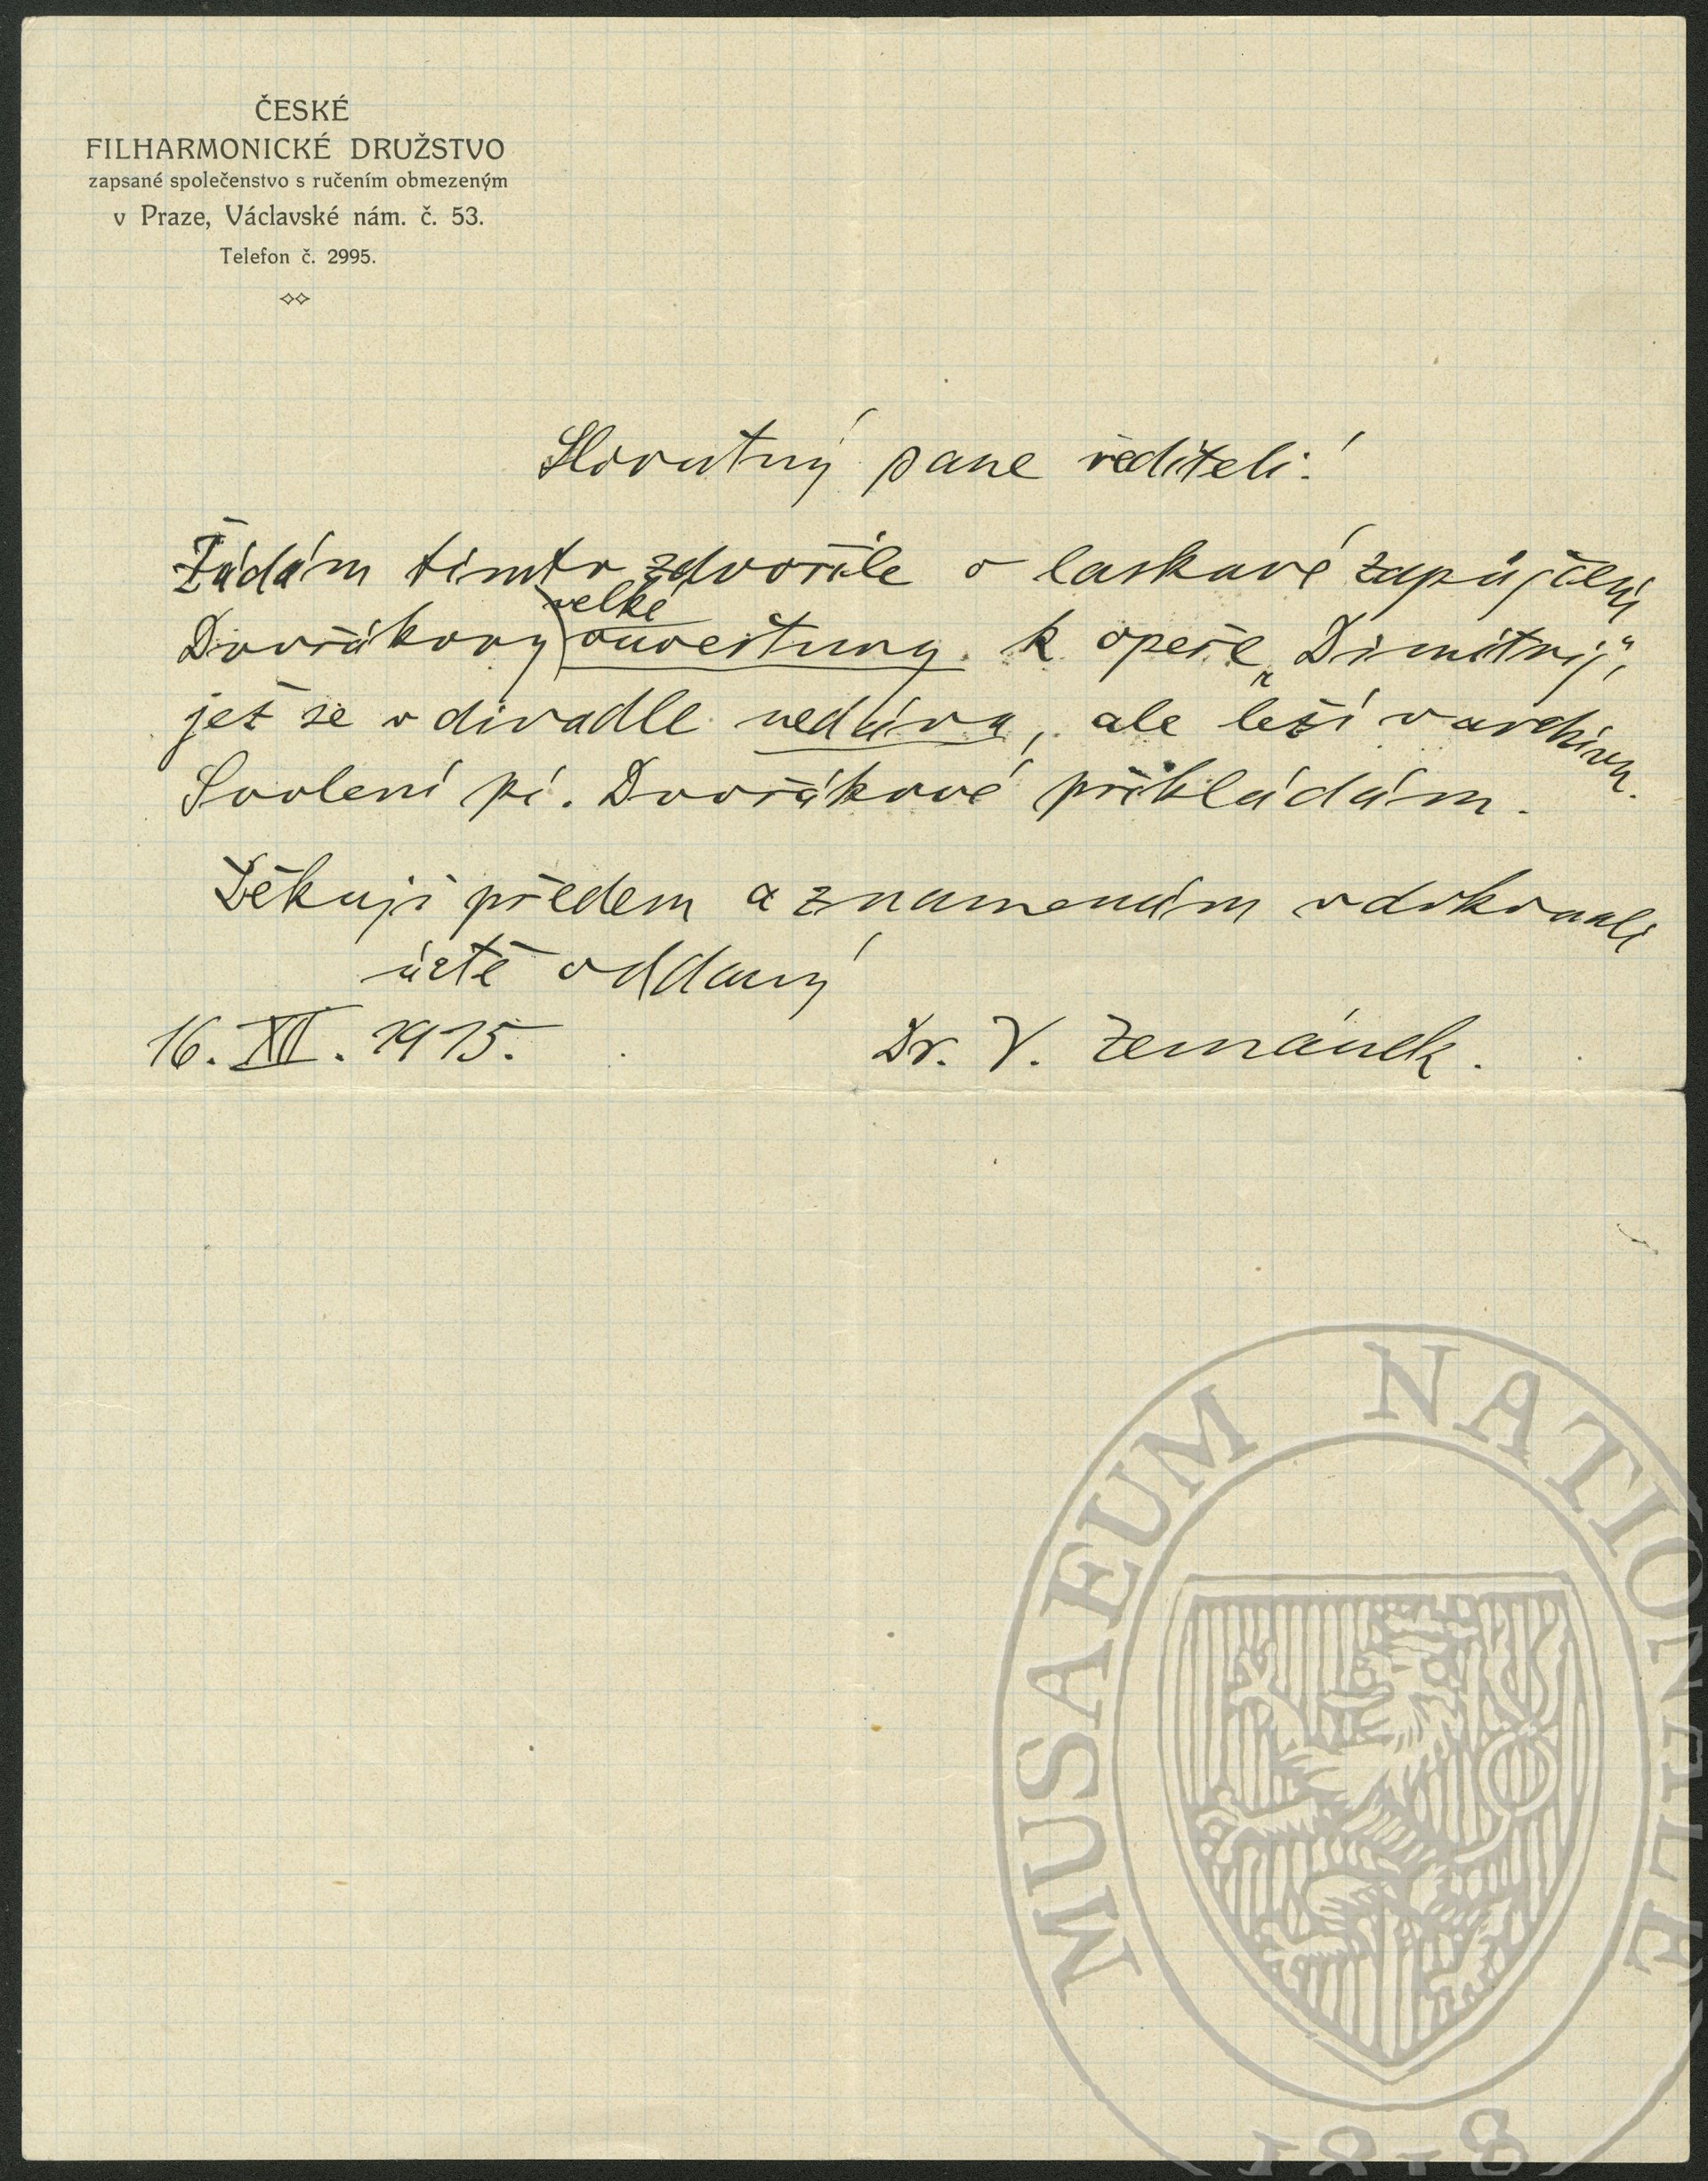 ČESKÉ
FILHARMONICKÉ DRUŽSTVO
zapsané společenstvo s ručením obmezeným
v Praze, Václavské nám. č. 53.
Telefon č. 2995.
Slovutný pane řediteli!
Žádám tímto zdvořile o laskavé zapůjčení
velké
Dvořákovy ouvertury k opeře „Dimitrij“,
jež se v divadle nedává, ale leží v archivu.
Svolení pí. Dvořákové přikládám.
Děkuji předem a znamenám v dokonalé
úctě oddaný
16. XII. 1915. Dr. V. Zemánek.
MUSAEUM NATIONALE
1818